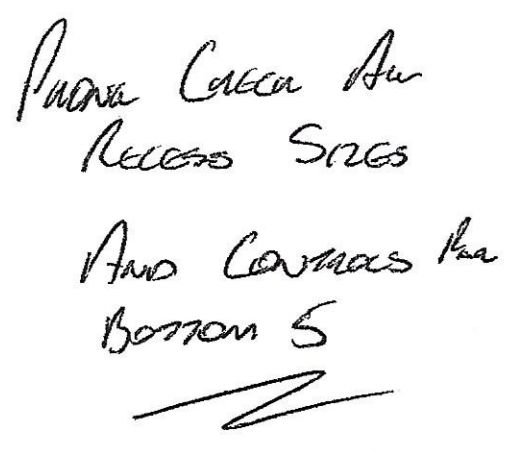 Check All
Recess Sizes
And Controls For
Bottom 5